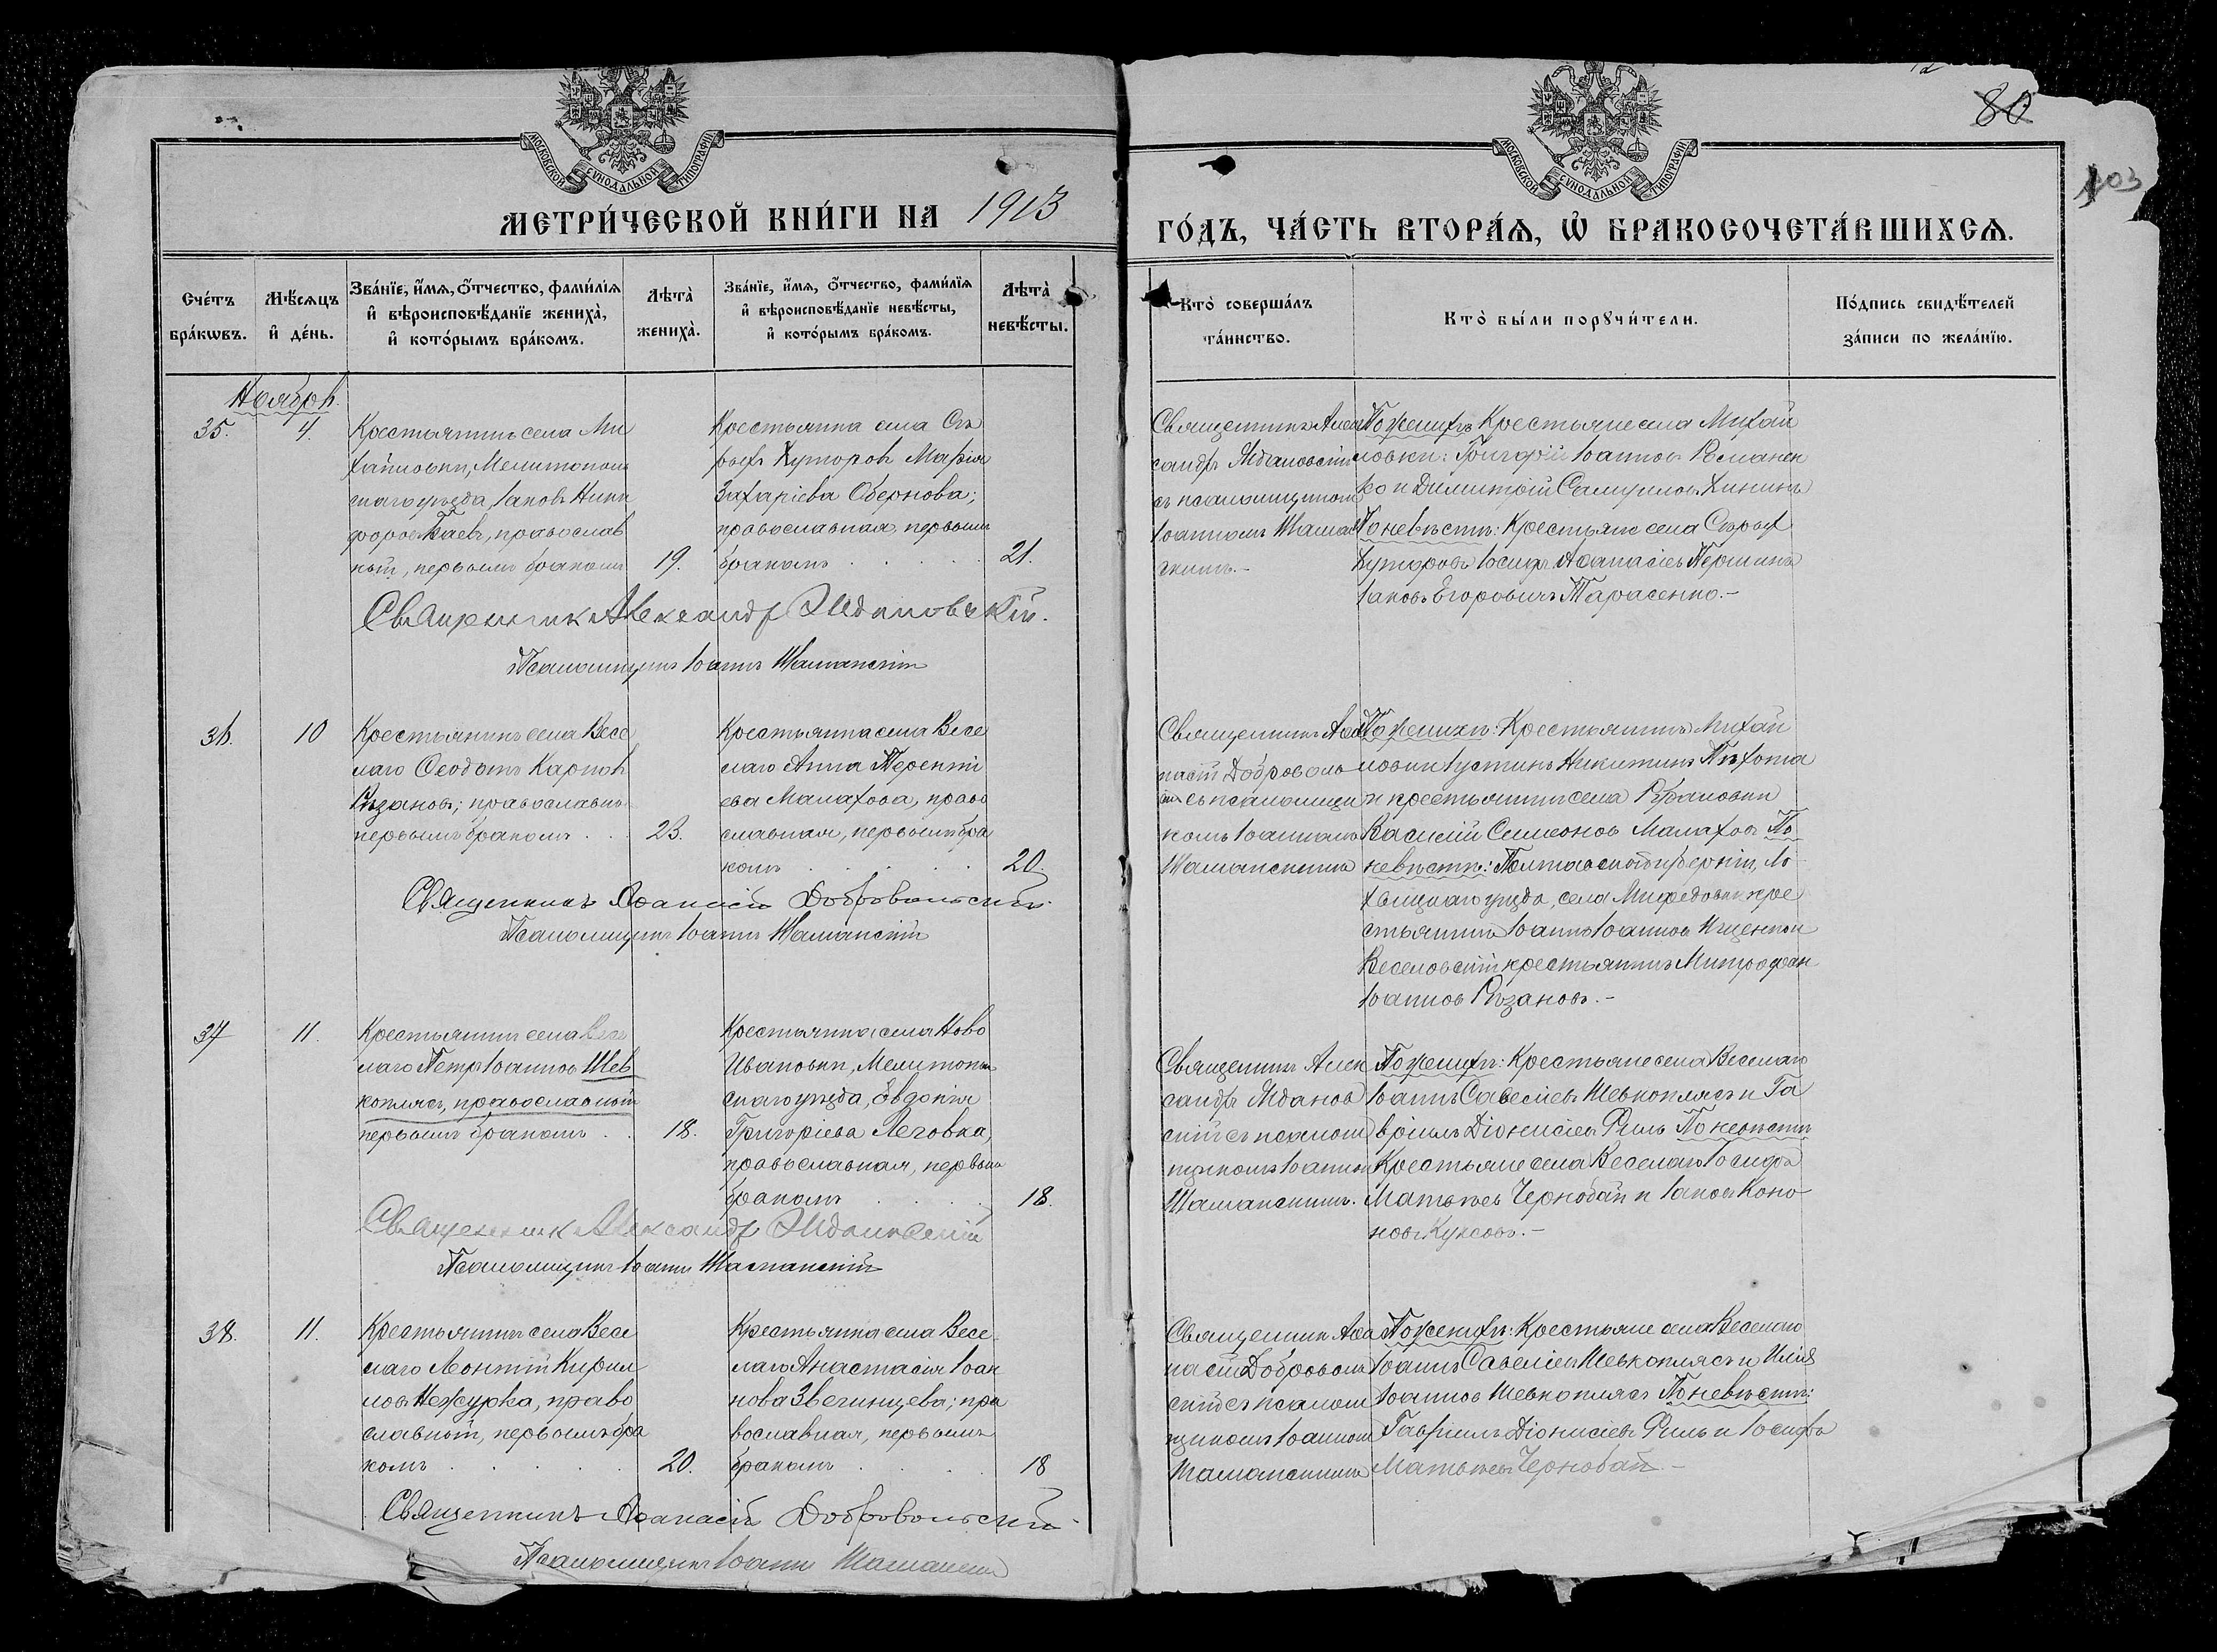 80
103
МОСКОВСКОЙ СѴНОДАЛЬНОЙ ТИПОГРАФІИ
МОСКОВСКОЙ СѴНОДАЛЬНОЙ ТИПОГРАФІИ
МЕТРИ́ЧЕСКОЙ КНИ́ГИ НА 1913
ГО́ДЪ, ЧА́СТЬ ВТОРА́Ѧ, Ѽ БРАКОСОЧЕТА́ВШИХСѦ.
Сче́тъ
бра́кѡвъ.
Мѣ́сѧцъ
и҆ де́нь.
Зва́нїе, и҆́мѧ, ѻ҆́тчество, фами́лїѧ
и҆ вѣроисповѣ́данїе жениха̀,
и҆ кото́рымъ бра́комъ.
Лѣта̀
жениха̀.
Зва́нїе, и҆́мѧ, ѻ҆́тчество, фами́лїѧ
и҆ вѣроисповѣ́данїе невѣ́сты,
и҆ кото́рымъ бра́комъ.
Лѣта̀
невѣ́сты.
Кто̀ соверша́лъ
та́инство.
Кто̀ бы́ли порꙋчи́тели.
По́дпись свидѣ́телей
за́писи по жела́нїю.
Ноябрь
35.
4.
Крестьянинъ села Ми
хайловки, Мелитополь
скаго уѣзда, Іаковъ Ники
форовъ Баевъ, православ
ный, первымъ бракомъ
19.
Крестьянка села Ста
рыхъ Хуторовъ Марія
Захаріева Обернова;
православная, первымъ
бракомъ
21.
Священникъ Алек
сандръ Ждановскій
съ псаломщикомъ
Іоанномъ Шаман
скимъ.-
По женихѣ Крестьяне села Михай
ловки: Григорій Іоанновъ Романен
ко и Димитрій Самуиловъ Хининъ
По невѣстѣ: Крестьяне села Старых
Хуторовъ Іосифъ Аѳанасіевъ Першинъ
Іаковъ Егоровичъ Тарасенко.-
Священник Александр Ждановскій.
Псаломщикъ Іоаннъ Шаманскій
36.
10
Крестьянинъ села Весе
лаго Ѳеодотъ Карповъ
Рѣзановъ; православный
первымъ бракомъ
23.
Крестьянка села Весе
лаго Анна Терентi
ева Малахова, право
славная, первымъ бра
комъ
20.
Священникъ Аѳа
насій Доброволь
скій съ псаломщи
комъ Іоанномъ
Шаманскимъ
По женихѣ: Крестьянинъ Михай
ловки Іустинъ Никитинъ Пѣхота
и крестьянинъ села
Василій Симеоновъ Малаховъ По
невѣстѣ: Полтавской губерніи, Ло
хвицкаго уѣзда, села кре
стьянинъ Іоаннъ Іоанновъ Ищенко и
Веселовскій крестьянинъ Митрофан
Іоанновъ Рѣзановъ.-
Священникъ Аѳанасій Добровольскій
Псаломщикъ Іоаннъ Шаманскій
37
11.
Крестьянинъ села Весе
лаго Петръ Іоанновъ Шев
коплясъ, православный
первымъ бракомъ
18.
Крестьянка села Ново
Ивановки, Мелитополь
скаго уѣзда, Евдокія
Григоріева Леговка,
православная, первымъ
бракомъ
18.
Священникъ Алек
сандръ Жданов
скій съ псалом
щикомъ Іоанномъ
Шаманскимъ.
По женихѣ: Крестьяне села Веселаго
Іоаннъ Савеліевъ Шевкоплясъ и Га
вріилъ Діонисіевъ Риль По невѣстѣ
Крестьяне села Веселаго Іосифъ
Матвѣевъ Чернобай и Іаковъ Коно
новъ Куксовъ.-
Священник Александр Ждановскій
Псаломщикъ Іоаннъ Шаманскій
38.
11.
Крестьянинъ села Весе
лаго Леонтій Кирил
ловъ Нежурка, право
славный, первымъ бра
комъ
20.
Крестьянка села Весе
лаго Анастасія Іоан
нова Звегинцева; пра
вославная, первымъ
бракомъ
18
Священникъ Аѳа
насій Доброволь
скій съ псалом
щикомъ Іоанномъ
Шаманскимъ
По женихѣ: Крестьяне села Веселаго
Іоаннъ Савеліевъ Шевкоплясъ и Илія
Іоанновъ Шевкоплясъ По невѣстѣ:
Гавріилъ Діонисіевъ Риль и Іосифъ
Матвѣевъ Чернобай -
Священникъ Аѳанасій Добровольскій
Псаломщикъ Іоаннъ Шаманскій